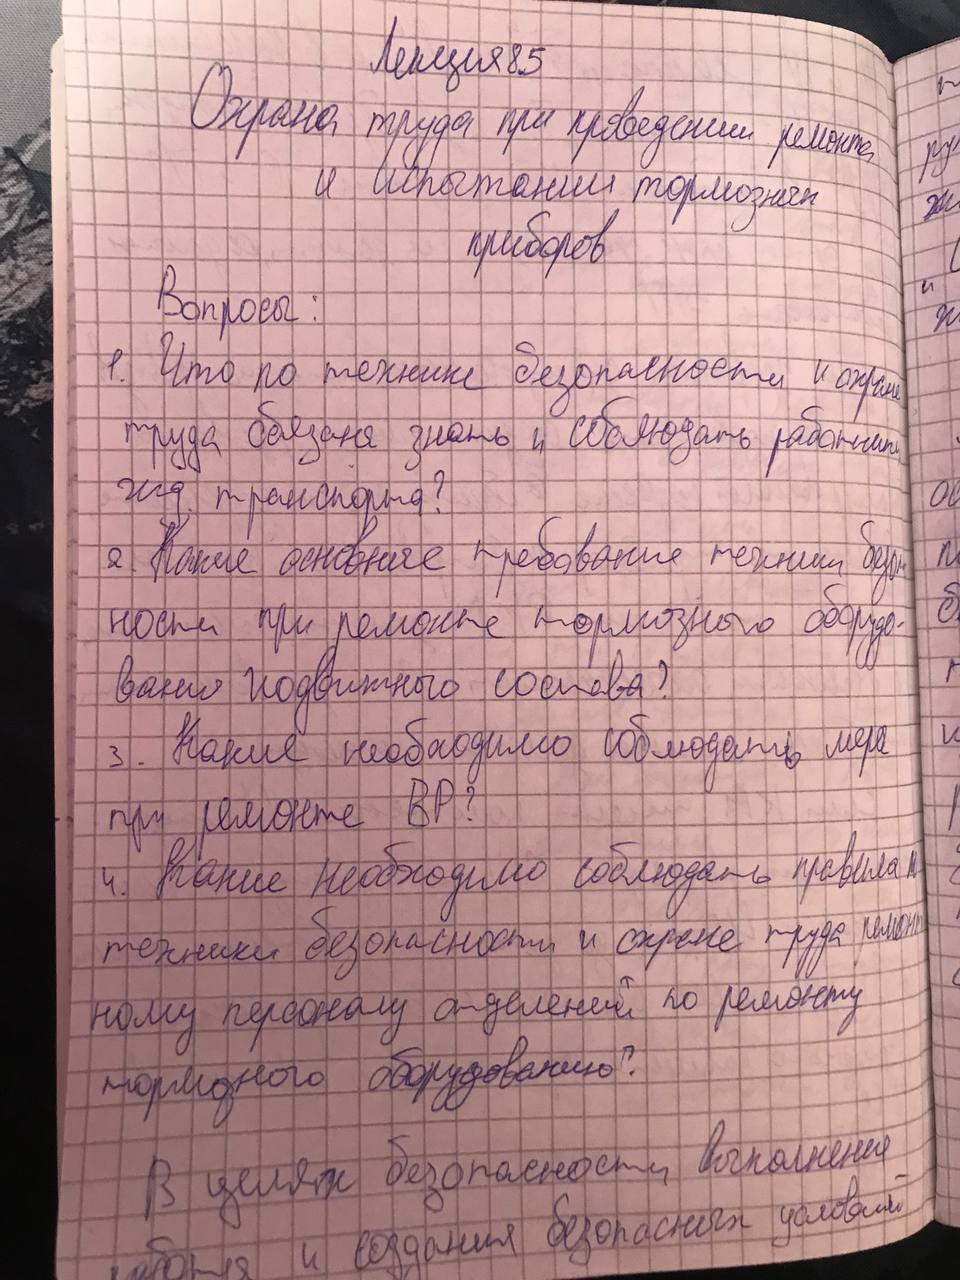 Лекция 85
Охрана труда при проведении ремонта
и испытании тормозных
приборов
Вопросы:
1. Что по технике безопасности и охране
труда обязаня знать и соблюдать работники
жд. транспорта?
2. Какие основние требование техники безоп
ности при ремонте тормозного оборудо-
вания подвижного состава?
3. Какие необходимо соблюдать мера
при ремонте ВР?
4. Какие необходимо соблюдать правила п
техники безопасности и охране труда ремонт
ному персоналу отделений по ремонту
тормозного оборудованию?
В целях безопасности выполнения
и создания безопасных условий